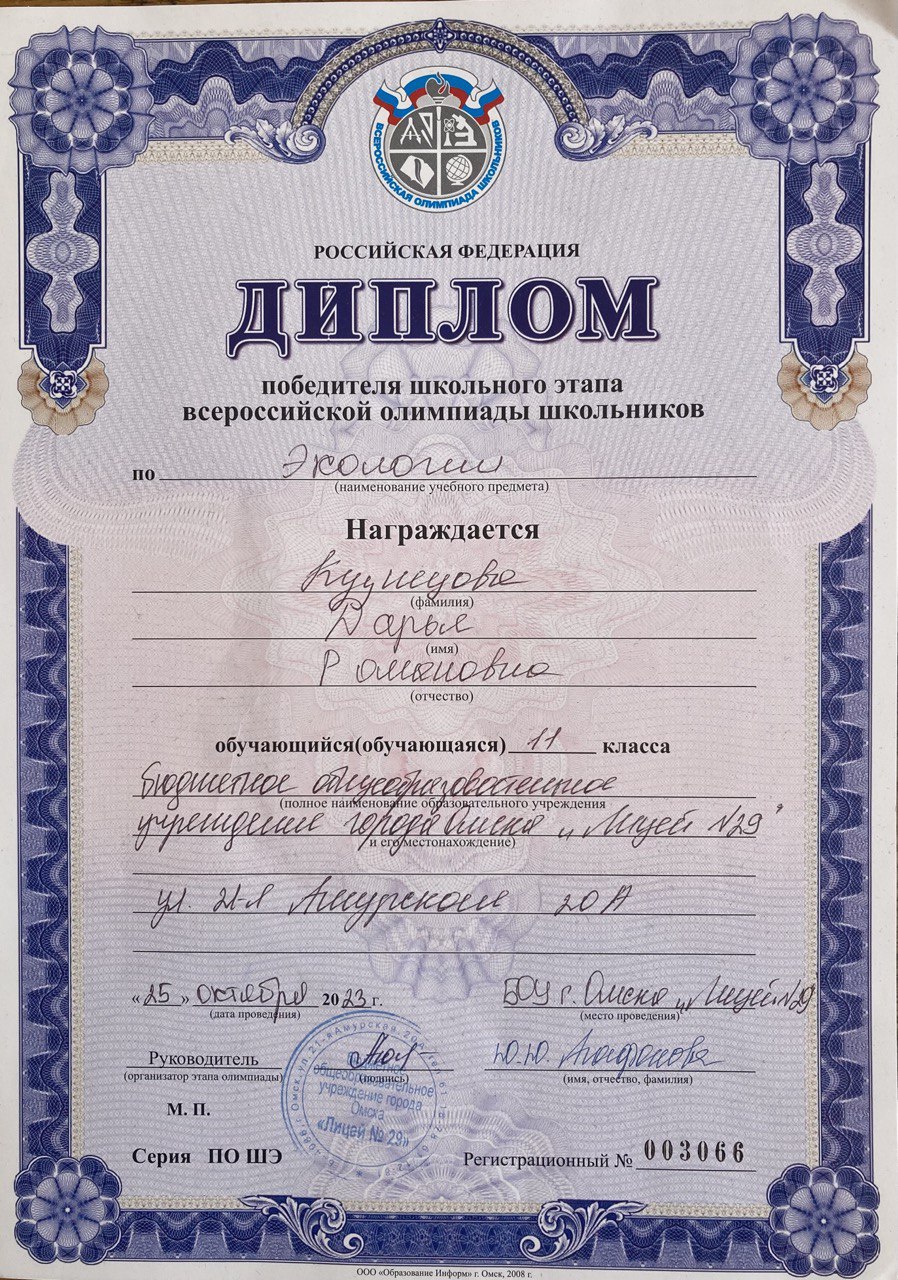 ВСЕРОССИЙСКАЯ ОЛИМПИАДА ШКОЛЬНИКОВ
РОССИЙСКАЯ ФЕДЕРАЦИЯ
ДИПЛОМ
победителя школьного этапа
всероссийской олимпиады школьников
по Экологии
(наименование учебного предмета)
Награждается
Кузнецова
(фамилия)
Дарья
(имя)
Романовна
(отчество)
обучающийся(обучающаяся) 11 класса
бюджетное общеобразовательное
(полное наименование образовательного учреждения
учреждение города Омска „Лицей №29"
и его местонахождение)
ул. 21-я Амурская 20А
«25» октября 2023 г.
(дата проведения)
БОУ г. Омска „Лицей №29"
(место проведения)
Руководитель
(организатор этапа олимпиады)
(подпись)
Ю.Ю.
(имя, отчество, фамилия)
общеобразовательное
учреждение города
Омска
«Лицей № 29»
М. П.
Серия ПО ШЭ
Регистрационный № 003066
ООО «Образование Информ» г. Омск, 2008 г.